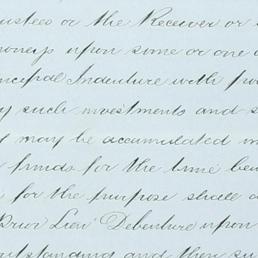 ustees or the Receiver or s
moneys upon some or one o
incipal Indenture with pow
y such investments and s
may be accumulated in
funds for the time bei
for the purpose shall
Prior Lien Debenture upon
outstanding and then su